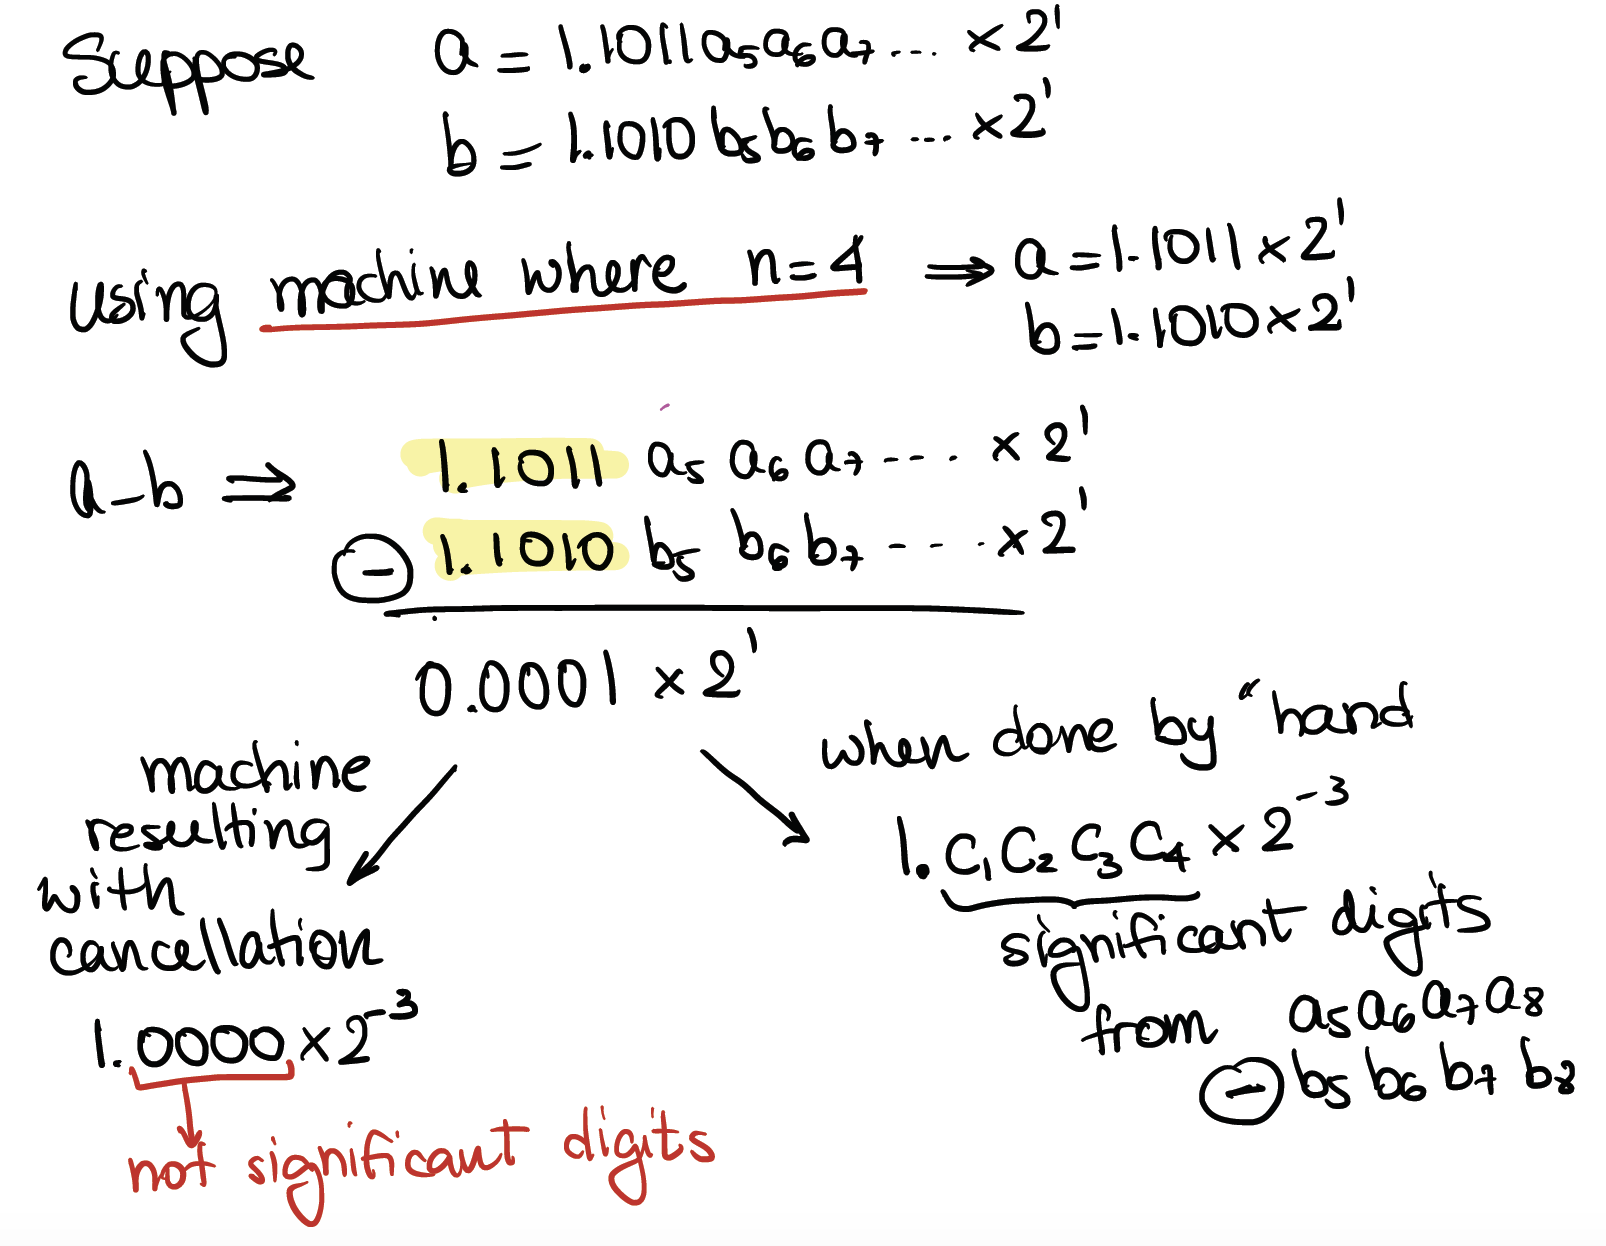 Suppose a = 1.1011a₅a₆a₇... × 2¹
b = 1.1010b₅b₆b₇... × 2¹
using machine where n=4 ⇒ a=1.1011×2¹
b=1.1010×2¹
a-b ⇒ 1.1011 a₅ a₆ a₇ --- · × 2¹
⊖ 1.1010 b₅ b₆ b₇ --- · × 2¹
0.0001 × 2¹
machine
resulting
with
cancellation
1.0000 × 2⁻³
not significant digits
when done by “hand
1.C₁C₂C₃C₄ × 2⁻³
significant digits
from a₅a₆a₇a₈
⊖ b₅b₆b₇b₈